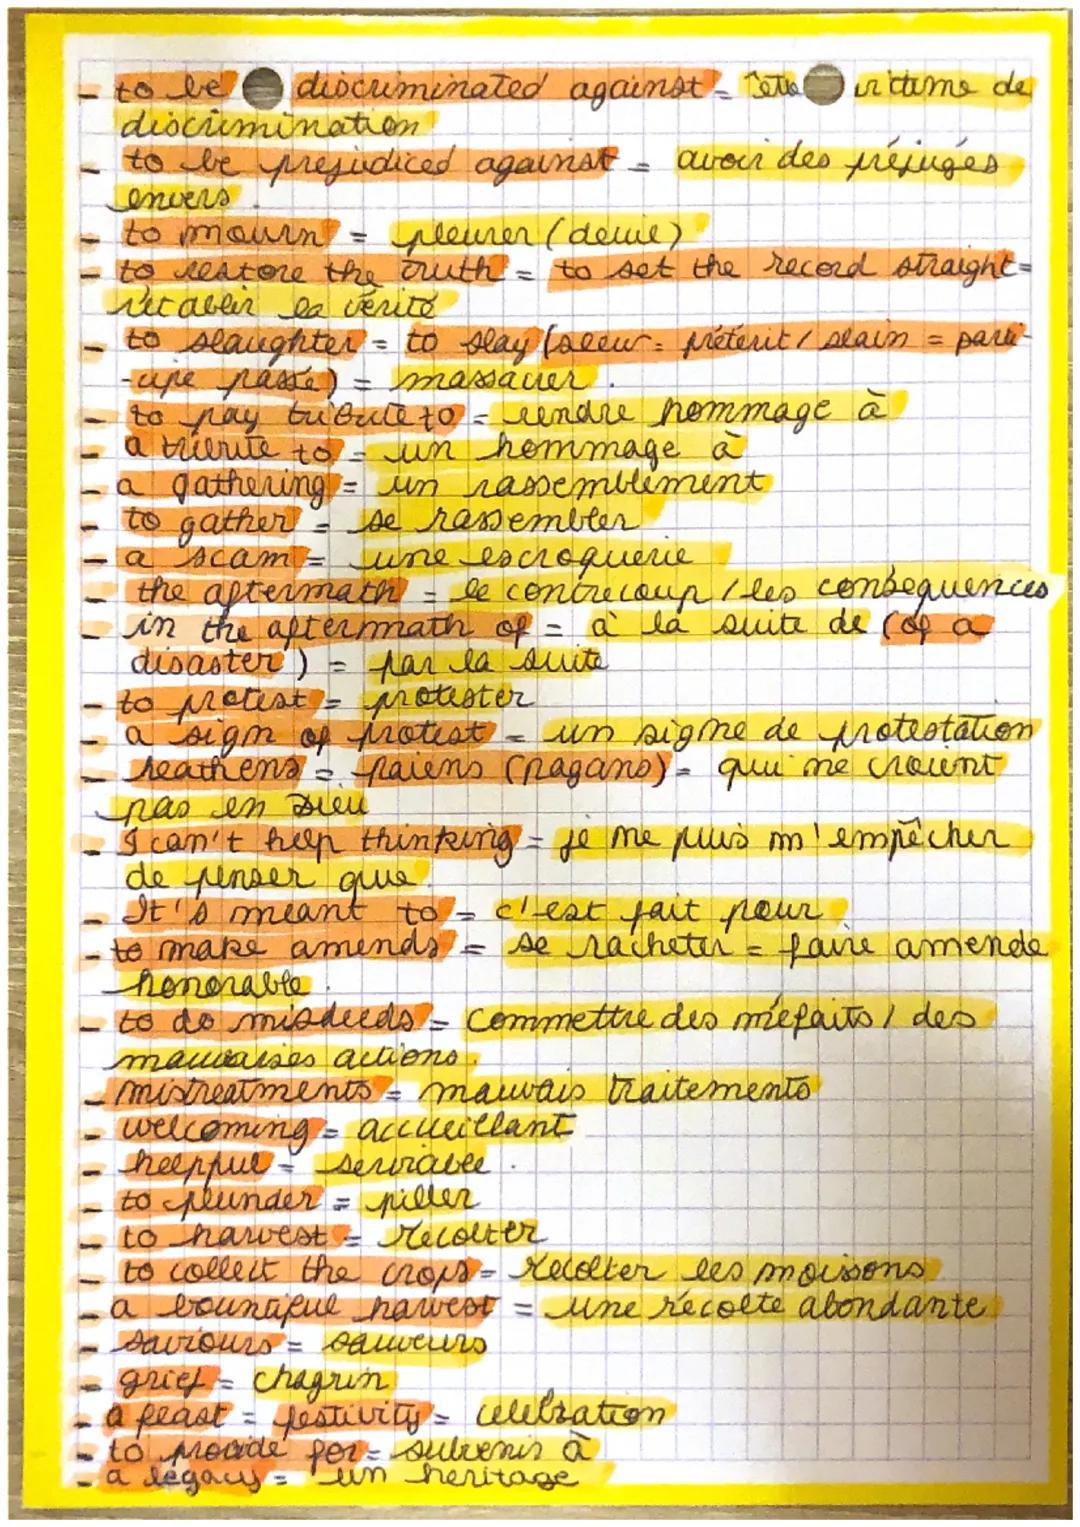 - to be discriminated against = être victime de
discrimination
- to be prejudiced against = avoir des préjugés
envers.
- to mourn = pleurer (deuil)
- to restore the truth = to set the record straight =
rétablir la vérité
- to slaughter = to slay (slew = prétérit / slain = parti-
-cipe passé) = massacrer.
- to pay tribute to = rendre hommage à
- a tribute to = un hommage à
- a gathering = un rassemblement
- to gather = se rassembler
- a scam = une escroquerie
- the aftermath = le contrecoup / les conséquences
- in the aftermath of = à la suite de (of a
disaster) = par la suite
- to protest = protester
- a sign of protest = un signe de protestation
- heathens = païens (pagans) = qui ne croient
pas en Dieu
- I can't help thinking = je ne puis m'empêcher
de penser que.
- It's meant to = c'est fait pour
- to make amends = se racheter = faire amende
honorable.
- to do misdeeds = commettre des méfaits / des
mauvaises actions.
- mistreatments = mauvais traitements
- welcoming = accueillant
- helpful = serviable.
- to plunder = piller
- to harvest = récolter
- to collect the crops = récolter les moissons
- a bountiful harvest = une récolte abondante
- saviours = sauveurs
- grief = chagrin
- a feast = festivity = célébration
- to provide for = subvenir à
- a legacy = un héritage